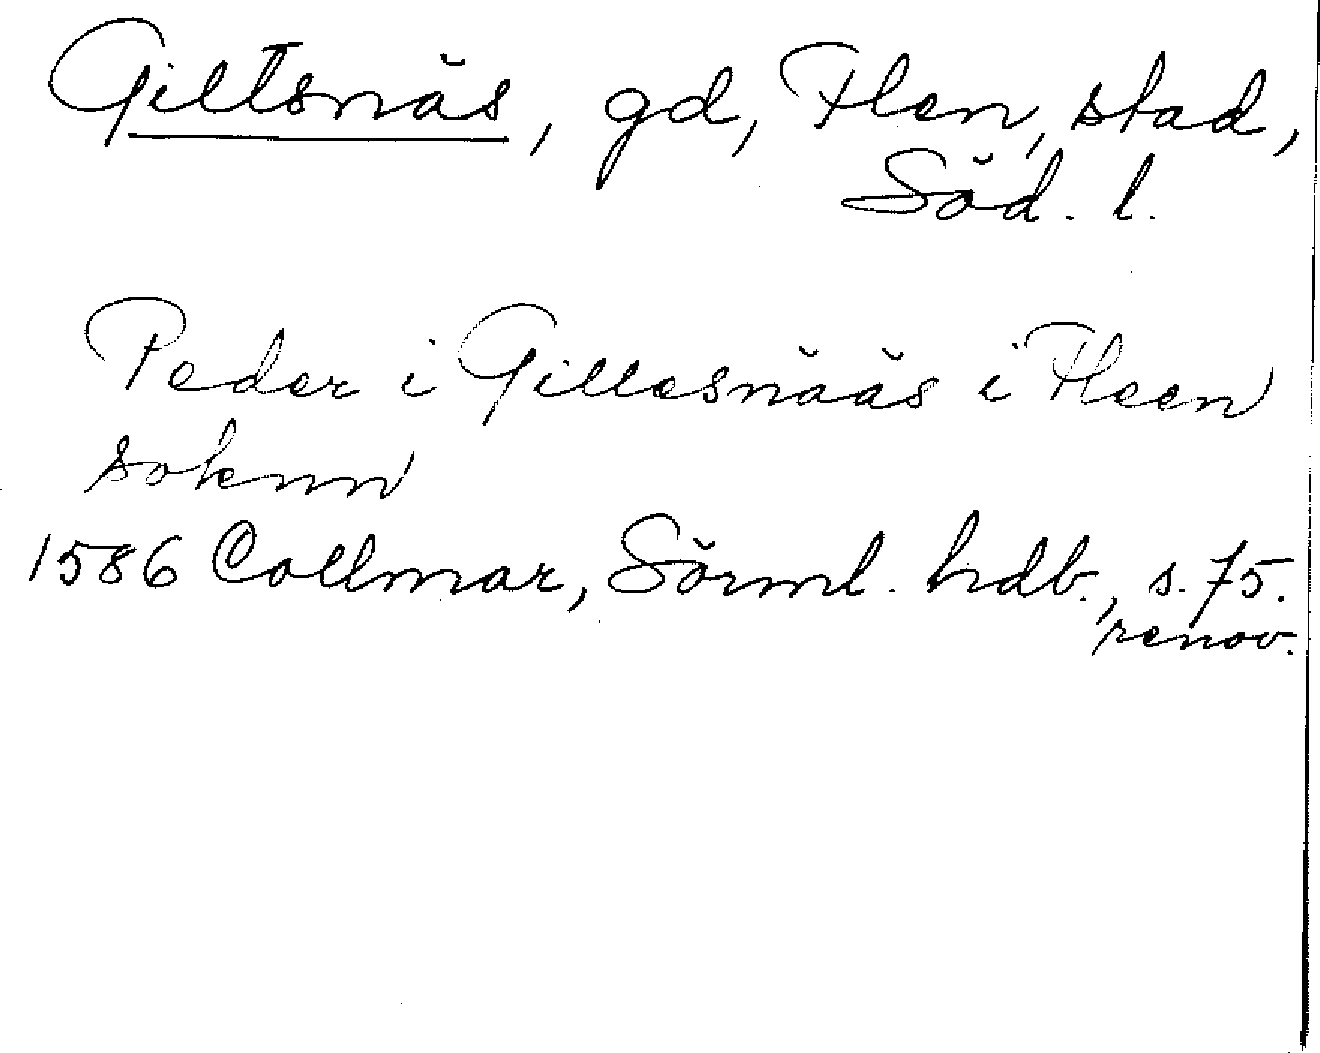 Giltsnäs, gd, Flen, stad,
Söd. l.
Peder i Gillesnääs i Fleen
soknn
1586 Collmar, Sörml. hdb., s. 75.
renov.